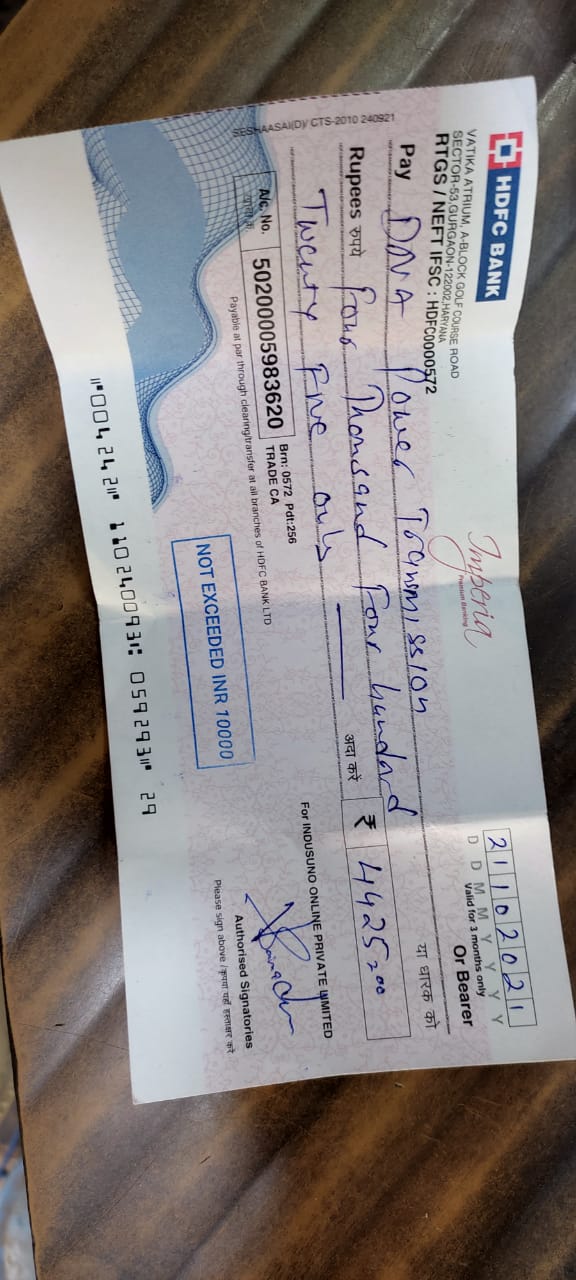 HDFC BANK
VATIKA ATRIUM, A-BLOCK GOLF COURSE ROAD
SECTOR-53,GURGAON-122002,HARYANA
RTGS / NEFT IFSC : HDFC0000572
Imperia
Premium Banking
21102021
D D M M Y Y Y Y
Valid for 3 months only
Pay DNA Power Transmission Or Bearer
या धारक को
Rupees रुपये Four Thousand Four hundard
Twenty Five only अदा करें ₹ 4425=00
A/c. No. 50200005983620 Brn: 0572 Pdt:256
TRADE CA
Payable at par through clearing/transfer at all branches of HDFC BANK LTD
For INDUSUNO ONLINE PRIVATE LIMITED
NOT EXCEEDED INR 10000
Authorised Signatories
Please sign above / कृपया यहाँ हस्ताक्षर करें
SESHAASAI(D)/ CTS-2010 240921
⑈004242⑈ 110240093⑆ 059293⑈ 29